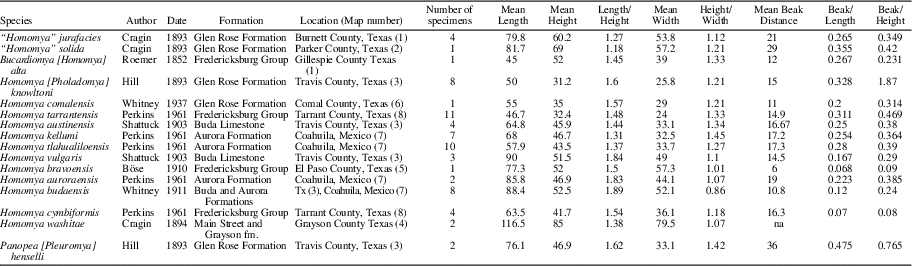 Species Author Date Formation Location (Map number) Number of specimens Mean Length Mean Height Length/ Height Mean Width Height/ Width Mean Beak Distance Beak/ Length Beak/ Height
“Homomya” jurafacies Cragin 1893 Glen Rose Formation Burnett County, Texas (1) 4 79.8 60.2 1.27 53.8 1.12 21 0.265 0.349
“Homomya” solida Cragin 1893 Glen Rose Formation Parker County, Texas (2) 1 81.7 69 1.18 57.2 1.21 29 0.355 0.42
Bucardiomya [Homomya] alta Roemer 1852 Fredericksburg Group Gillespie County Texas (1) 1 45 52 1.45 39 1.33 12 0.267 0.231
Homomya [Pholadomya] knowltoni Hill 1893 Glen Rose Formation Travis County, Texas (3) 8 50 31.2 1.6 25.8 1.21 15 0.328 1.87
Homomya comalensis Whitney 1937 Glen Rose Formation Comal County, Texas (6) 1 55 35 1.57 29 1.21 11 0.2 0.314
Homomya tarrantensis Perkins 1961 Fredericksburg Group Tarrant County, Texas (8) 11 46.7 32.4 1.48 24 1.33 14.9 0.311 0.469
Homomya austinensis Shattuck 1903 Buda Limestone Travis County, Texas (3) 4 64.8 45.9 1.44 33.1 1.34 16.67 0.25 0.38
Homomya kellumi Perkins 1961 Aurora Formation Coahuila, Mexico (7) 7 68 46.7 1.31 32.5 1.45 17.2 0.254 0.364
Homomya tlahualiloensis Perkins 1961 Aurora Formation Coahuila, Mexico (7) 10 57.9 43.5 1.37 33.7 1.27 17.3 0.28 0.39
Homomya vulgaris Shattuck 1903 Buda Limestone Travis County, Texas (3) 3 90 51.5 1.84 49 1.1 14.5 0.167 0.29
Homomya bravoensis Böse 1910 Fredericksburg Group El Paso County, Texas (5) 1 77.3 52 1.5 57.3 1.01 6 0.068 0.09
Homomya auroraensis Perkins 1961 Aurora Formation Coahuila, Mexico (7) 2 85.8 46.9 1.83 44.1 1.07 19 0.223 0.385
Homomya budaensis Whitney 1911 Buda and Aurora Formations Tx (3), Coahuila, Mexico (7) 8 88.4 52.5 1.89 52.1 0.86 10.8 0.12 0.24
Homomya cymbiformis Perkins 1961 Fredericksburg Group Tarrant County, Texas (8) 4 63.5 41.7 1.54 36.1 1.18 16.3 0.07 0.08
Homomya washitae Cragin 1894 Main Street and Grayson fm. Grayson County Texas (4) 2 116.5 85 1.38 79.5 1.07 na
Panopea [Pleuromya] henselli Hill 1893 Glen Rose Formation Travis County, Texas (3) 2 76.1 46.9 1.62 33.1 1.42 36 0.475 0.765